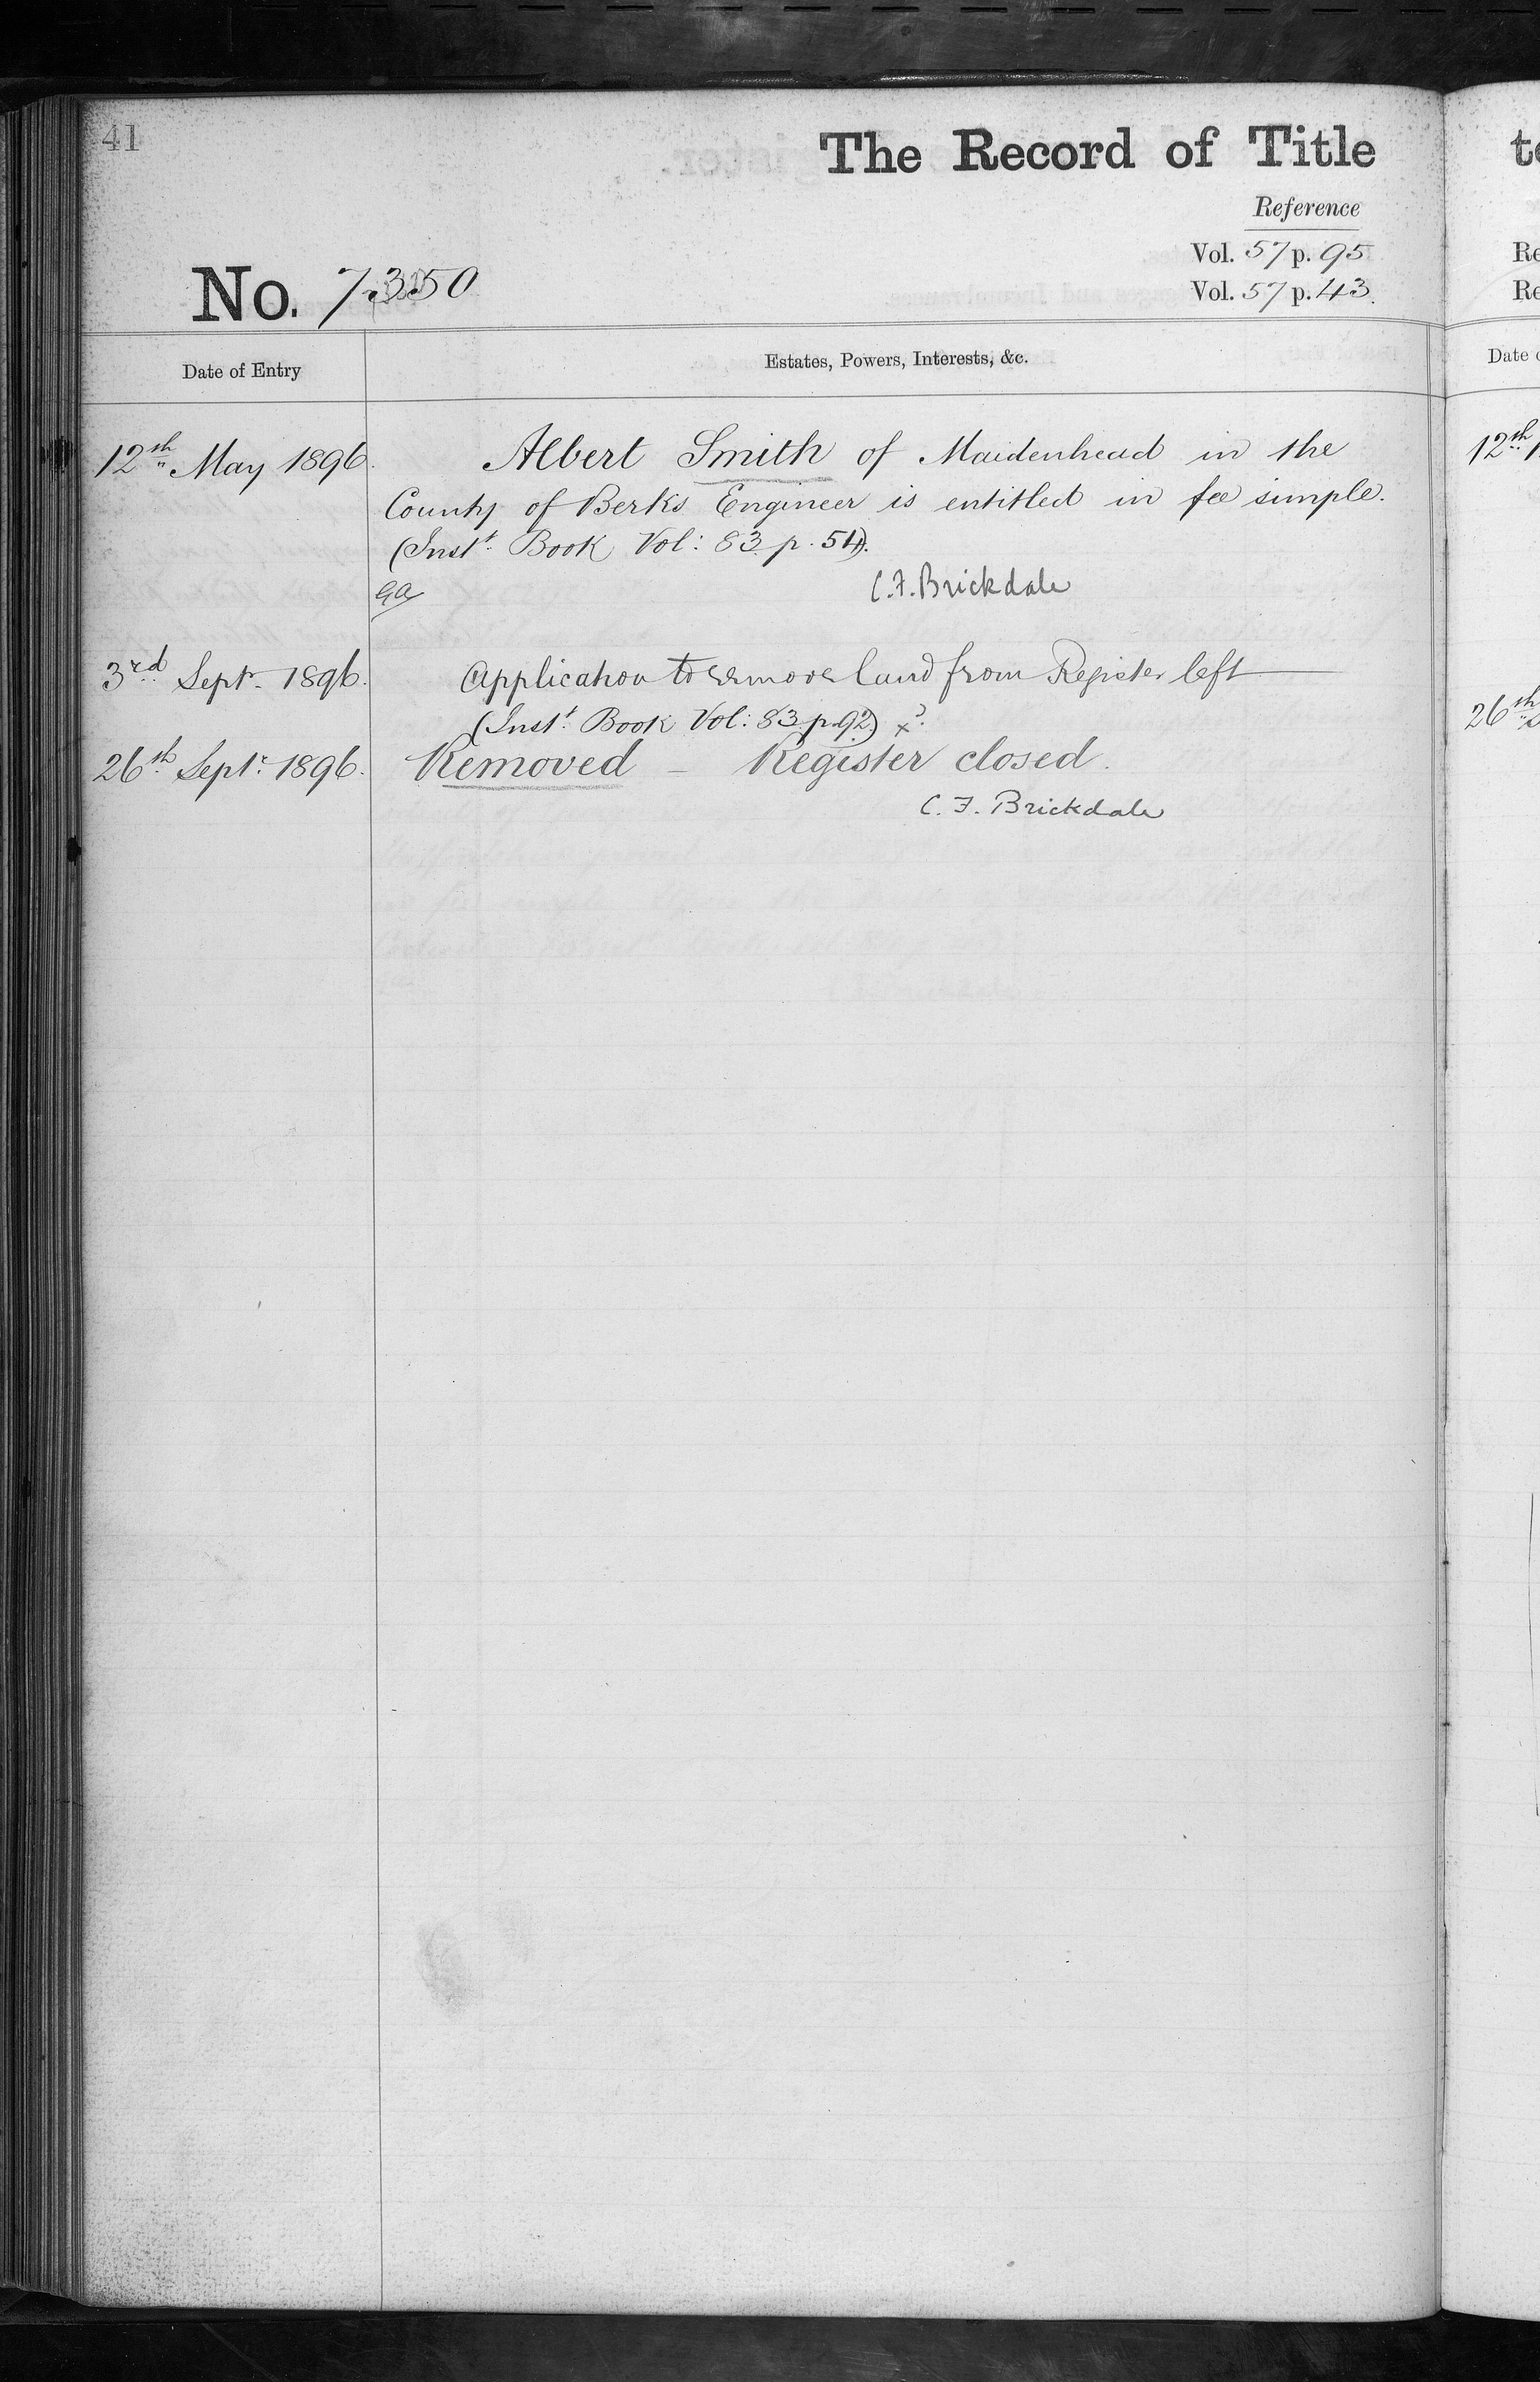 41
The Record of Title
Reference
Vol. 57 p. 95
Vol. 57 p. 43.
No. 7350
Date of Entry
Estates, Powers, Interests, &c.
12th May 1896.
Albert Smith of Maidenhead in the
County of Berks Engineer is entitled in fee simple.
(Instt. Book Vol: 83 p. 54).
C.F. Brickdale
3rd Septr. 1896.
Application to remove land from Register left
(Instt. Book Vol: 83 p. 92)
26th Septr. 1896.
Removed – Register closed.
C. F. Brickdale
te
Re
Re
Date
12th
26th